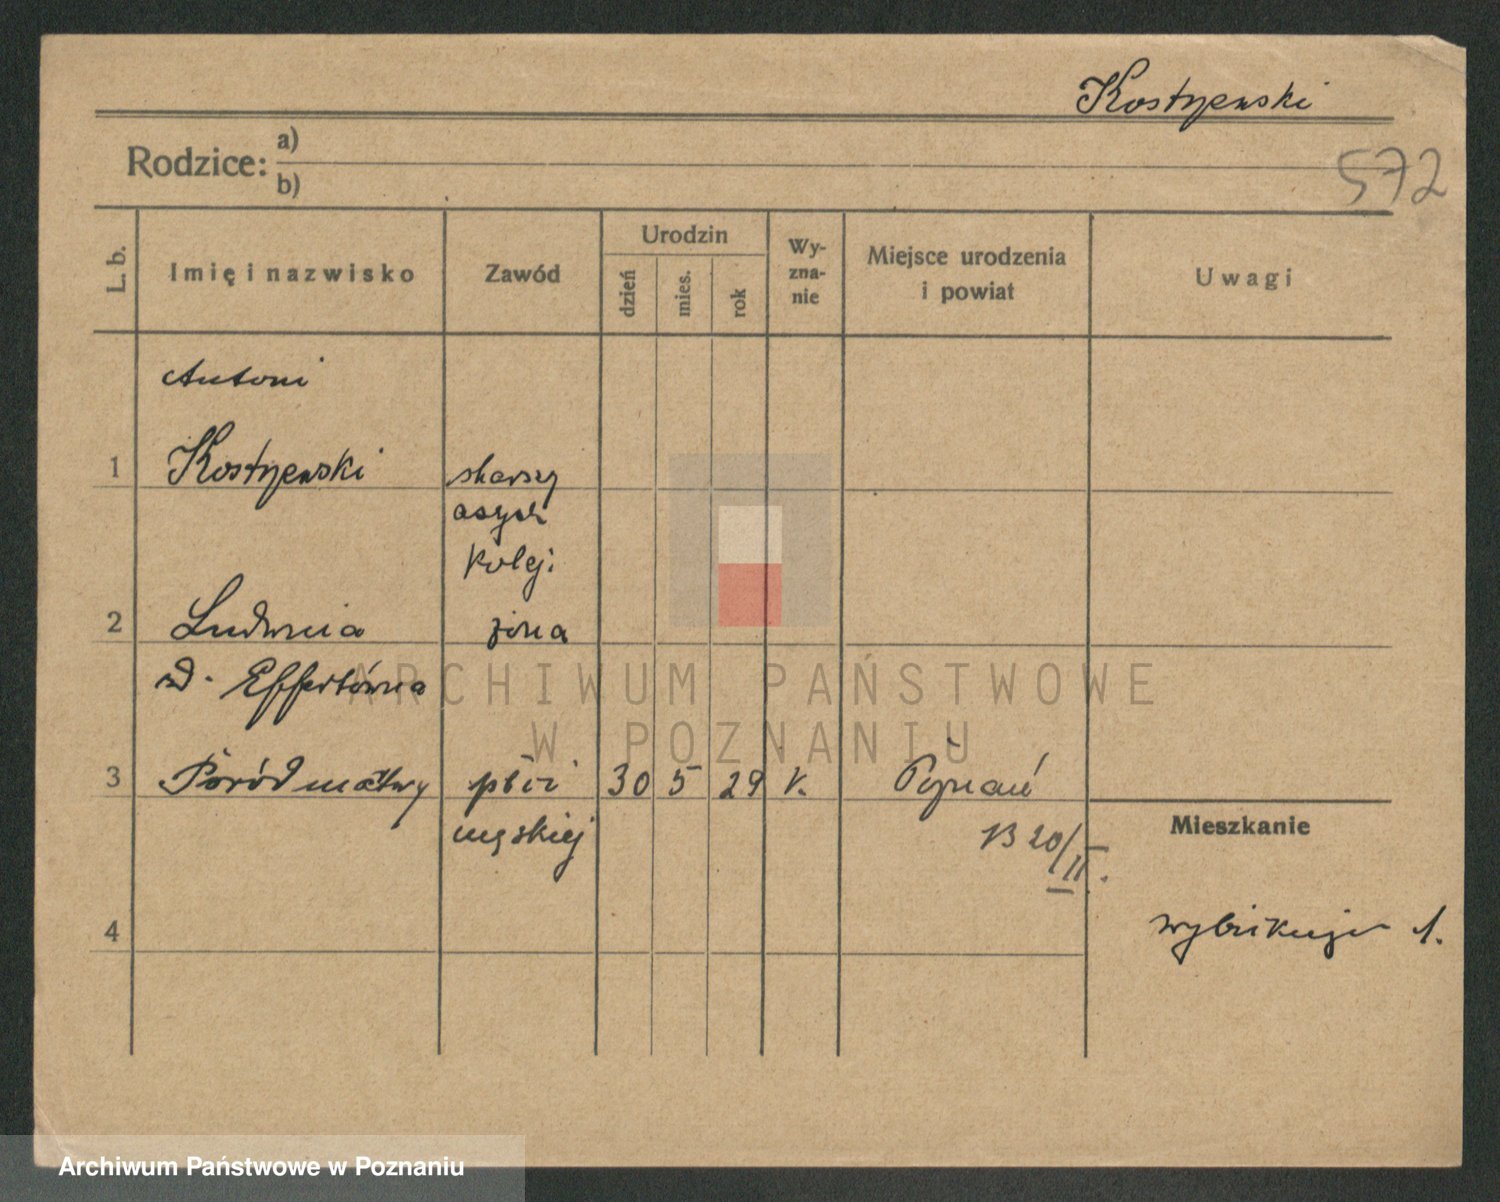 Kostrzewski
Rodzice:
a)
b)
572
L. b.
Imię i nazwisko
Zawód
Urodzin
dzień
mies.
rok
Wy-
zna-
nie
Miejsce urodzenia
i powiat
Uwagi
Antoni
1 Kostrzewski starszy
asyst
kolej.
2 Ludwika żona
ARCHIWUM PAŃSTWOWE
W POZNANIU
3 Poród martwy płci 30 5 29 k. Poznań
męskiej
Mieszkanie
B 20/II.
4
1.
Archiwum Państwowe w Poznaniu